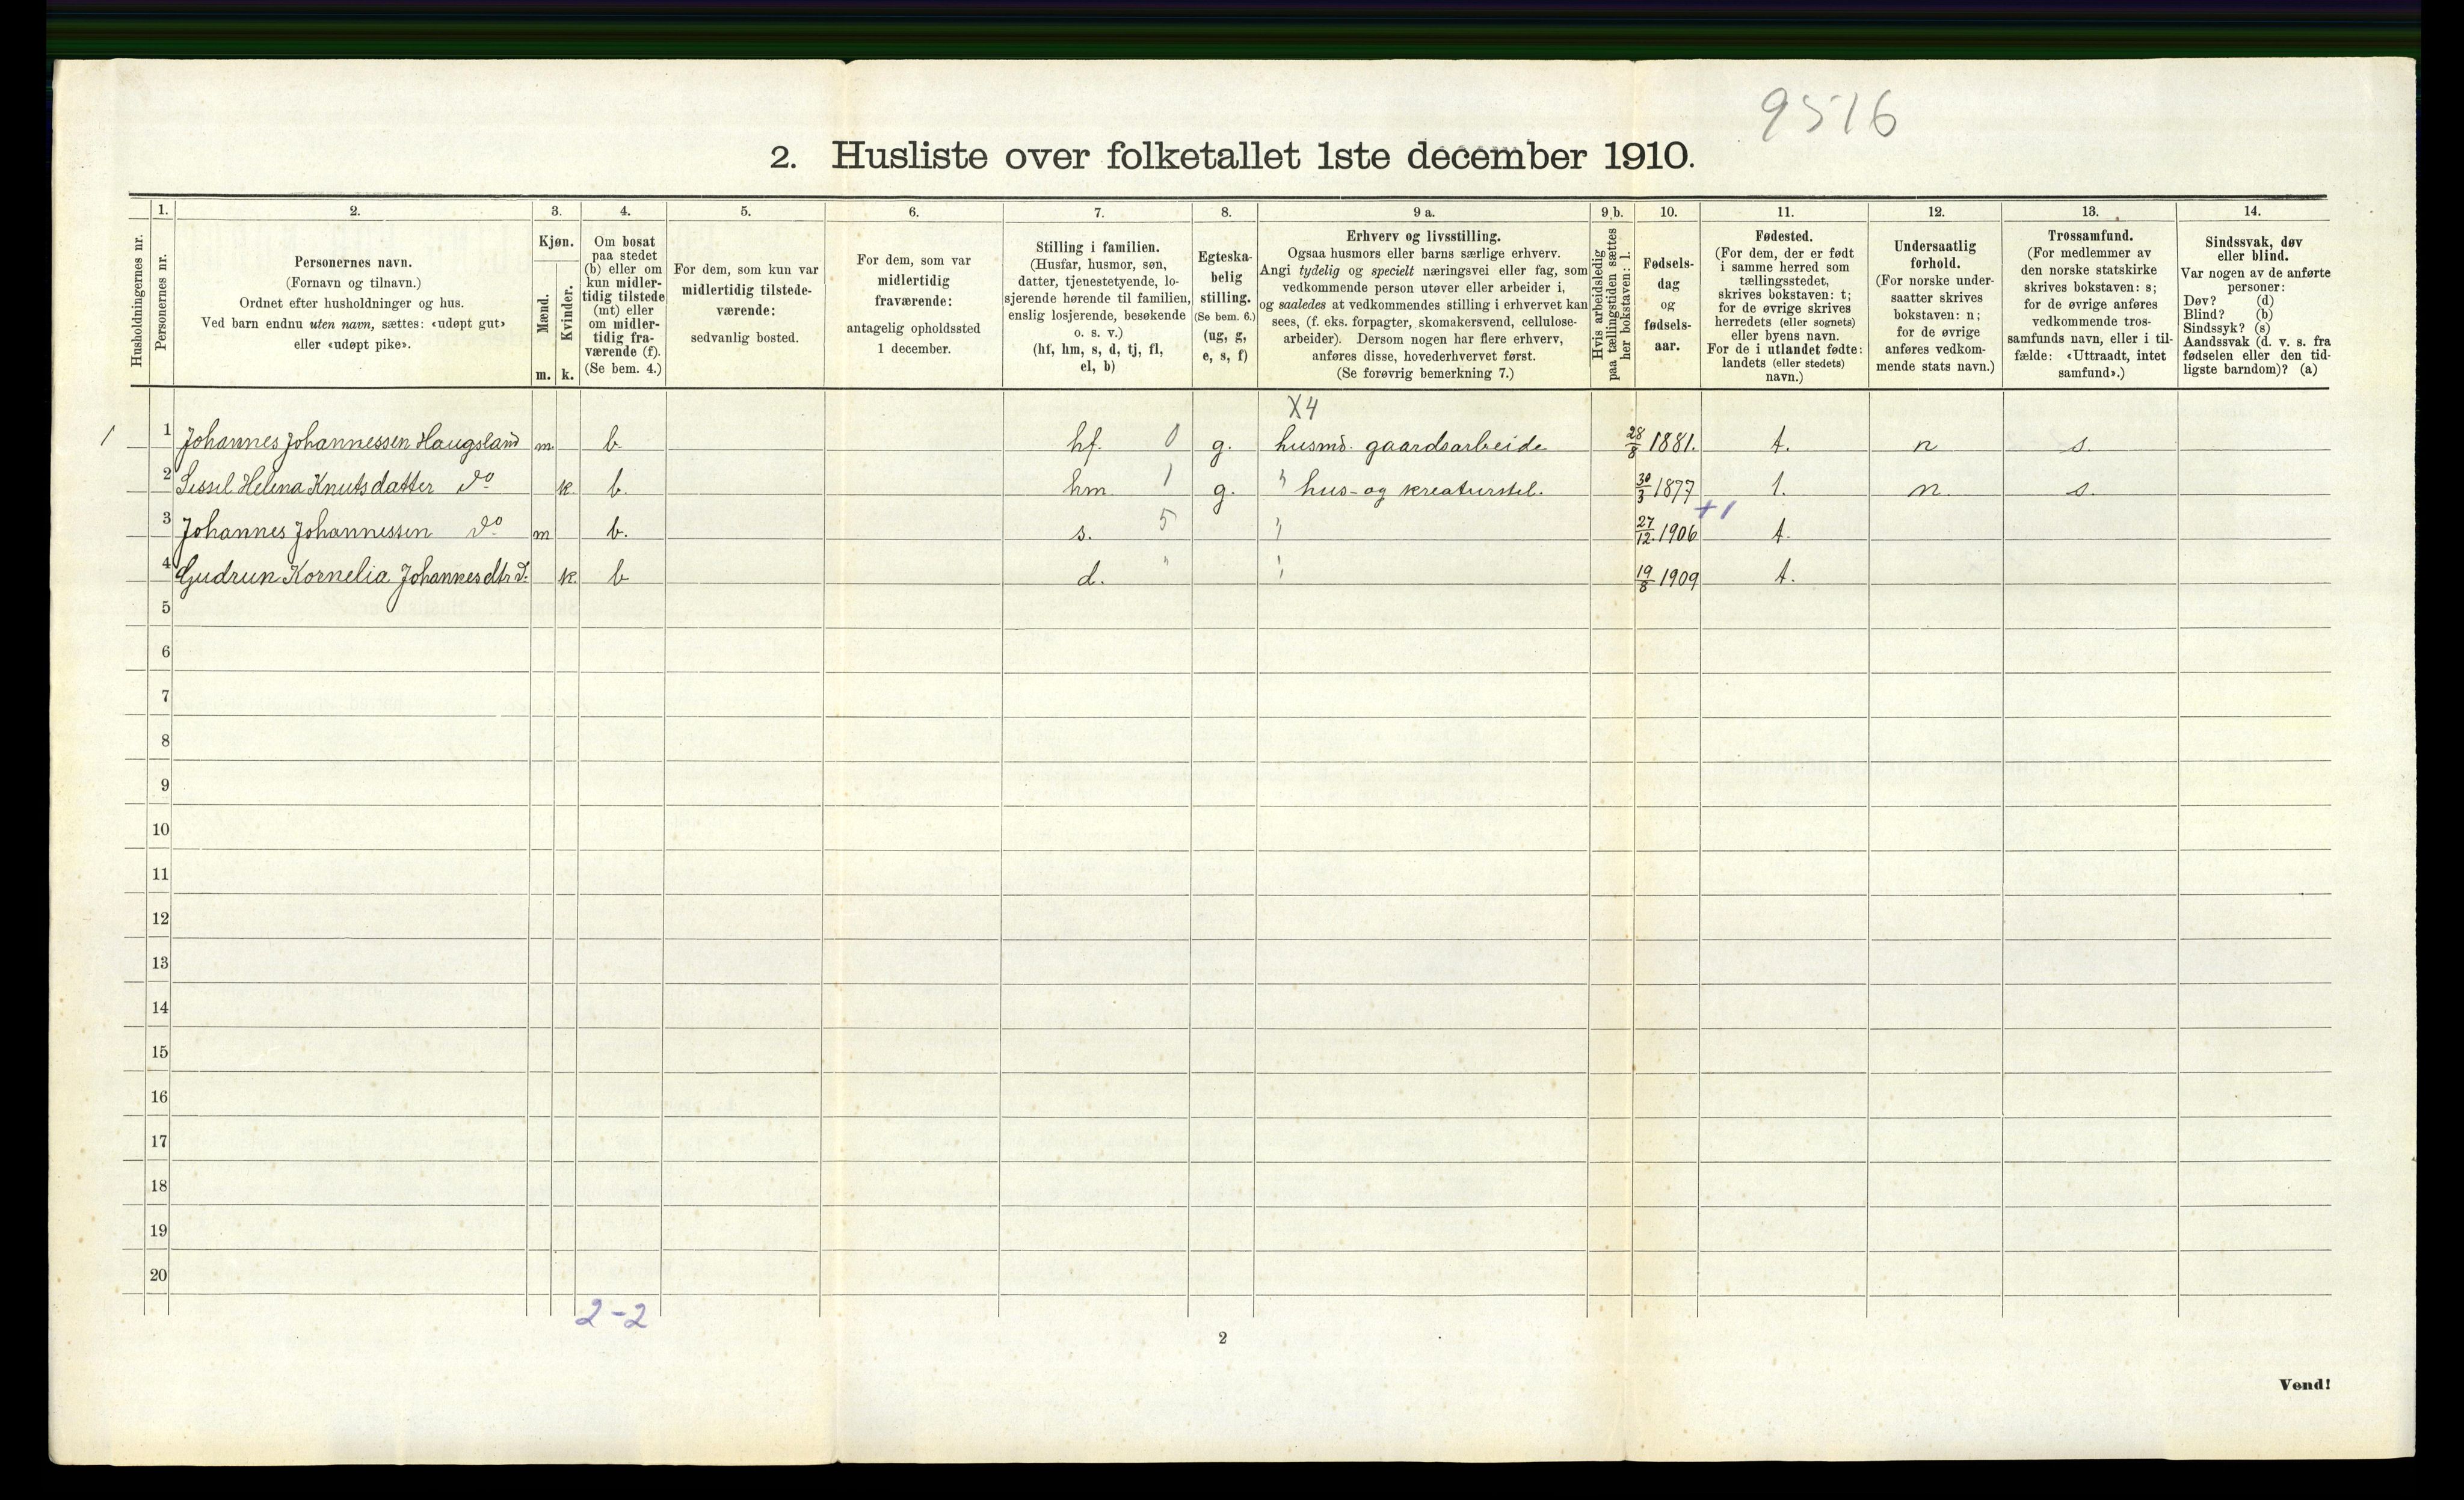 9516
2. Husliste over folketallet 1ste december 1910.
1. 2. 3. 4. 5. 6. 7. 8. 9 a. 9 b. 10. 11. 12. 13. 14.
Husholdningernes nr.
Personernes nr.
Personernes navn.
(Fornavn og tilnavn.)
Ordnet efter husholdninger og hus.
Ved barn endnu uten navn, sættes: «udøpt gut»
eller «udøpt pike».
Kjøn.
Mænd.
Kvinder.
m. k.
Om bosat
paa stedet
(b) eller om
kun midler-
tidig tilstede
(mt) eller
om midler-
tidig fra-
værende (f).
(Se bem. 4.)
For dem, som kun var
midlertidig tilstede-
værende:
sedvanlig bosted.
For dem, som var
midlertidig
fraværende:
antagelig opholdssted
1 december.
Stilling i familien.
(Husfar, husmor, søn,
datter, tjenestetyende, lo-
sjerende hørende til familien,
enslig losjerende, besøkende
o. s. v.)
(hf, hm, s, d, tj, fl,
el, b)
Egteska-
belig
stilling.
(Se bem. 6.)
(ug, g,
e, s, f)
Erhverv og livsstilling.
Ogsaa husmors eller barns særlige erhverv.
Angi tydelig og specielt næringsvei eller fag, som
vedkommende person utøver eller arbeider i,
og saaledes at vedkommendes stilling i erhvervet kan
sees, (f. eks. forpagter, skomakersvend, cellulose-
arbeider). Dersom nogen har flere erhverv,
anføres disse, hovederhvervet først.
(Se forøvrig bemerkning 7.)
Hvis arbeidsledig
paa tællingstiden sættes
her bokstaven: l.
Fødsels-
dag
og
fødsels-
aar.
Fødested.
(For dem, der er født
i samme herred som
tællingsstedet,
skrives bokstaven: t;
for de øvrige skrives
herredets (eller sognets)
eller byens navn.
For de i utlandet fødte:
landets (eller stedets)
navn.)
Undersaatlig
forhold.
(For norske under-
saatter skrives
bokstaven: n;
for de øvrige
anføres vedkom-
mende stats navn.)
Trossamfund.
(For medlemmer av
den norske statskirke
skrives bokstaven: s;
for de øvrige anføres
vedkommende tros-
samfunds navn, eller i til-
fælde: «Uttraadt, intet
samfund».)
Sindssvak, døv
eller blind.
Var nogen av de anførte
personer:
Døv? (d)
Blind? (b)
Sindssyk? (s)
Aandssvak (d. v. s. fra
fødselen eller den tid-
ligste barndom)? (a)
X4
1 1 Johannes Johannessen Haugsland m b. hf. 0 g. husmd. gaardsarbeide 28/8 1881. t. n s.
2 Sessel Helena Knutsdatter do k. b. hm 1 g. " hus- og kreaturstel. 30/3 1877 t. n. s.
+1
3 Johannes Johannessen do m b. s. 5 " 27/12. 1906 t.
4 Gudrun Kornelia Johannesdtr d. k. b d. " " 19/8 1909 t.
5
6
7
8
9
10
11
12
13
14
15
16
17
18
19
20
2-2
2
Vend!